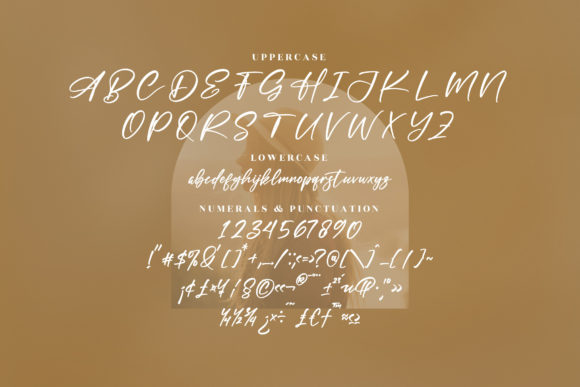 UPPERCASE
ABCDEFGHIJKLMN
OPQRSTUVWXYZ
LOWERCASE
abcdefghijklmnopqrstuvwxyz
NUMERALS & PUNCTUATION
1234567890
!"#$%&'()*+,-./:;<=>?@[\]^_{|}~
¡¢£¤¥¦§©«¬®¯°±²´µ¶·¸¹º»
¼½¾¿×÷ £€† ™≈≤≥